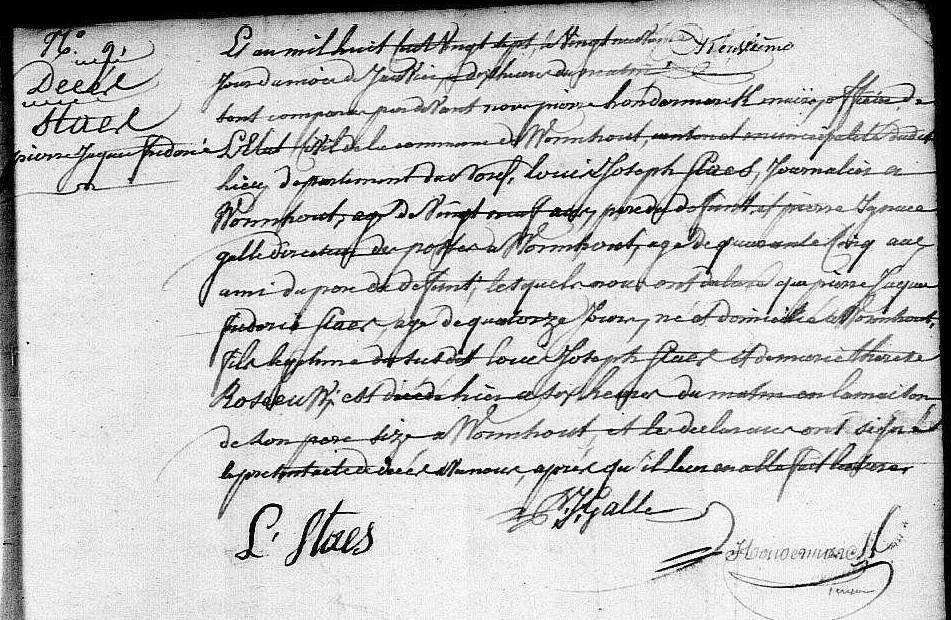 N.º 9,
Decés
Staes
pierre Jacque frederic
L'an mil huit cent Vingt sept, le Vingt neuvieme
Jour du mois de Janvier, a dix heures du matin
sont comparus pardevant nous pierre hondermarck maire, officier de
L'Etat Civil de la commune de Wormhout, canton et municipalité dudit
lieu, departement du Nord, Louis Joseph Staes, Journalier a
Wormhout, agé de Vingt neuf ans, pere du defunt, et pierre Ignace
galle directeur des postes a Wormhout, age de quarante Cinq ans
ami du pere du defunt, lesquels nous ont declaré que pierre Jacque
frederic Staes agé de quatorze Jours, né et domicilié a Wormhout,
fils legitime du susdit Louis Joseph Staes et de marie therese
est décédé hier a six heures du matin en la maison
de son pere size a Wormhout, et les declarans ont signé
le present acte de décés avec nous, après qu'il leur en a été fait lecture
L. Staes
P. J. Galle
Hondermarck